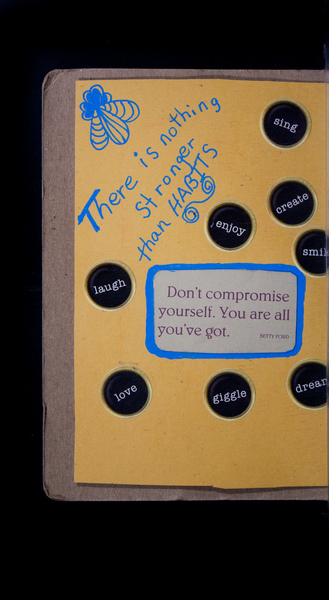 There is nothing
Stronger
than HABITS
sing
create
enjoy
smil
laugh
Don't compromise
yourself. You are all
you've got.
BETTY FORD
love
giggle
drea